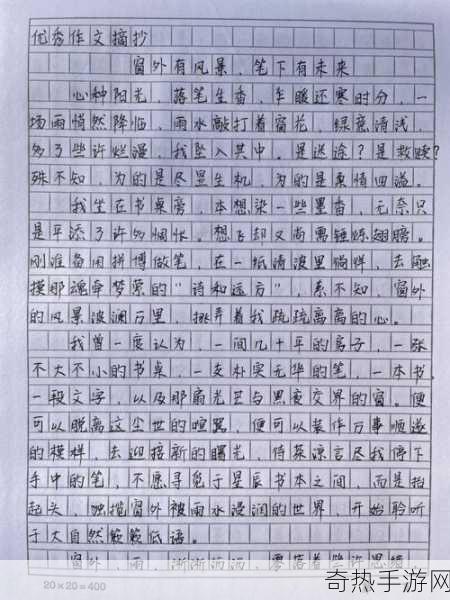 优秀作文摘抄
窗外有风景，笔下有未来
心种阳光，落笔生香，乍暖还寒时分，一
场雨悄然降临，雨水敲打着窗花，绿意清浅，
多了些许烂漫，我坠入其中。是迷途？是救赎？
殊不知，为的是尽显生机，为的是柔情四溢。
我坐在书桌旁，本想染一些墨香，无奈只
是平添了许多惆怅。想飞却又尚需锤炼翅膀。
刚准备用拼博做笔，在一纸清波里徜徉，去触
摸那魂牵梦萦的“诗和远方”，系不知，窗外
的风景波澜万里，拨弄着我疏疏离离的心。
我曾一度认为，一间几十年的房子，一张
不大不小的书桌，一支朴实无华的笔，一本书，
一段文字，以及那扇光芒与黑夜交界的窗。便
可以脱离这尘世的喧嚣，便可以装作万事顺遂
的模样，去迎接新的曙光，
手中的笔，不愿寻觅于星辰书本之间，而是抬
起头，独揽窗外被雨水浸润的世界，开始聆听
于大自然簌簌低语。
窗外，雨，淅淅沥沥，零落着些许思绪，
20×20=400
奇热手游网